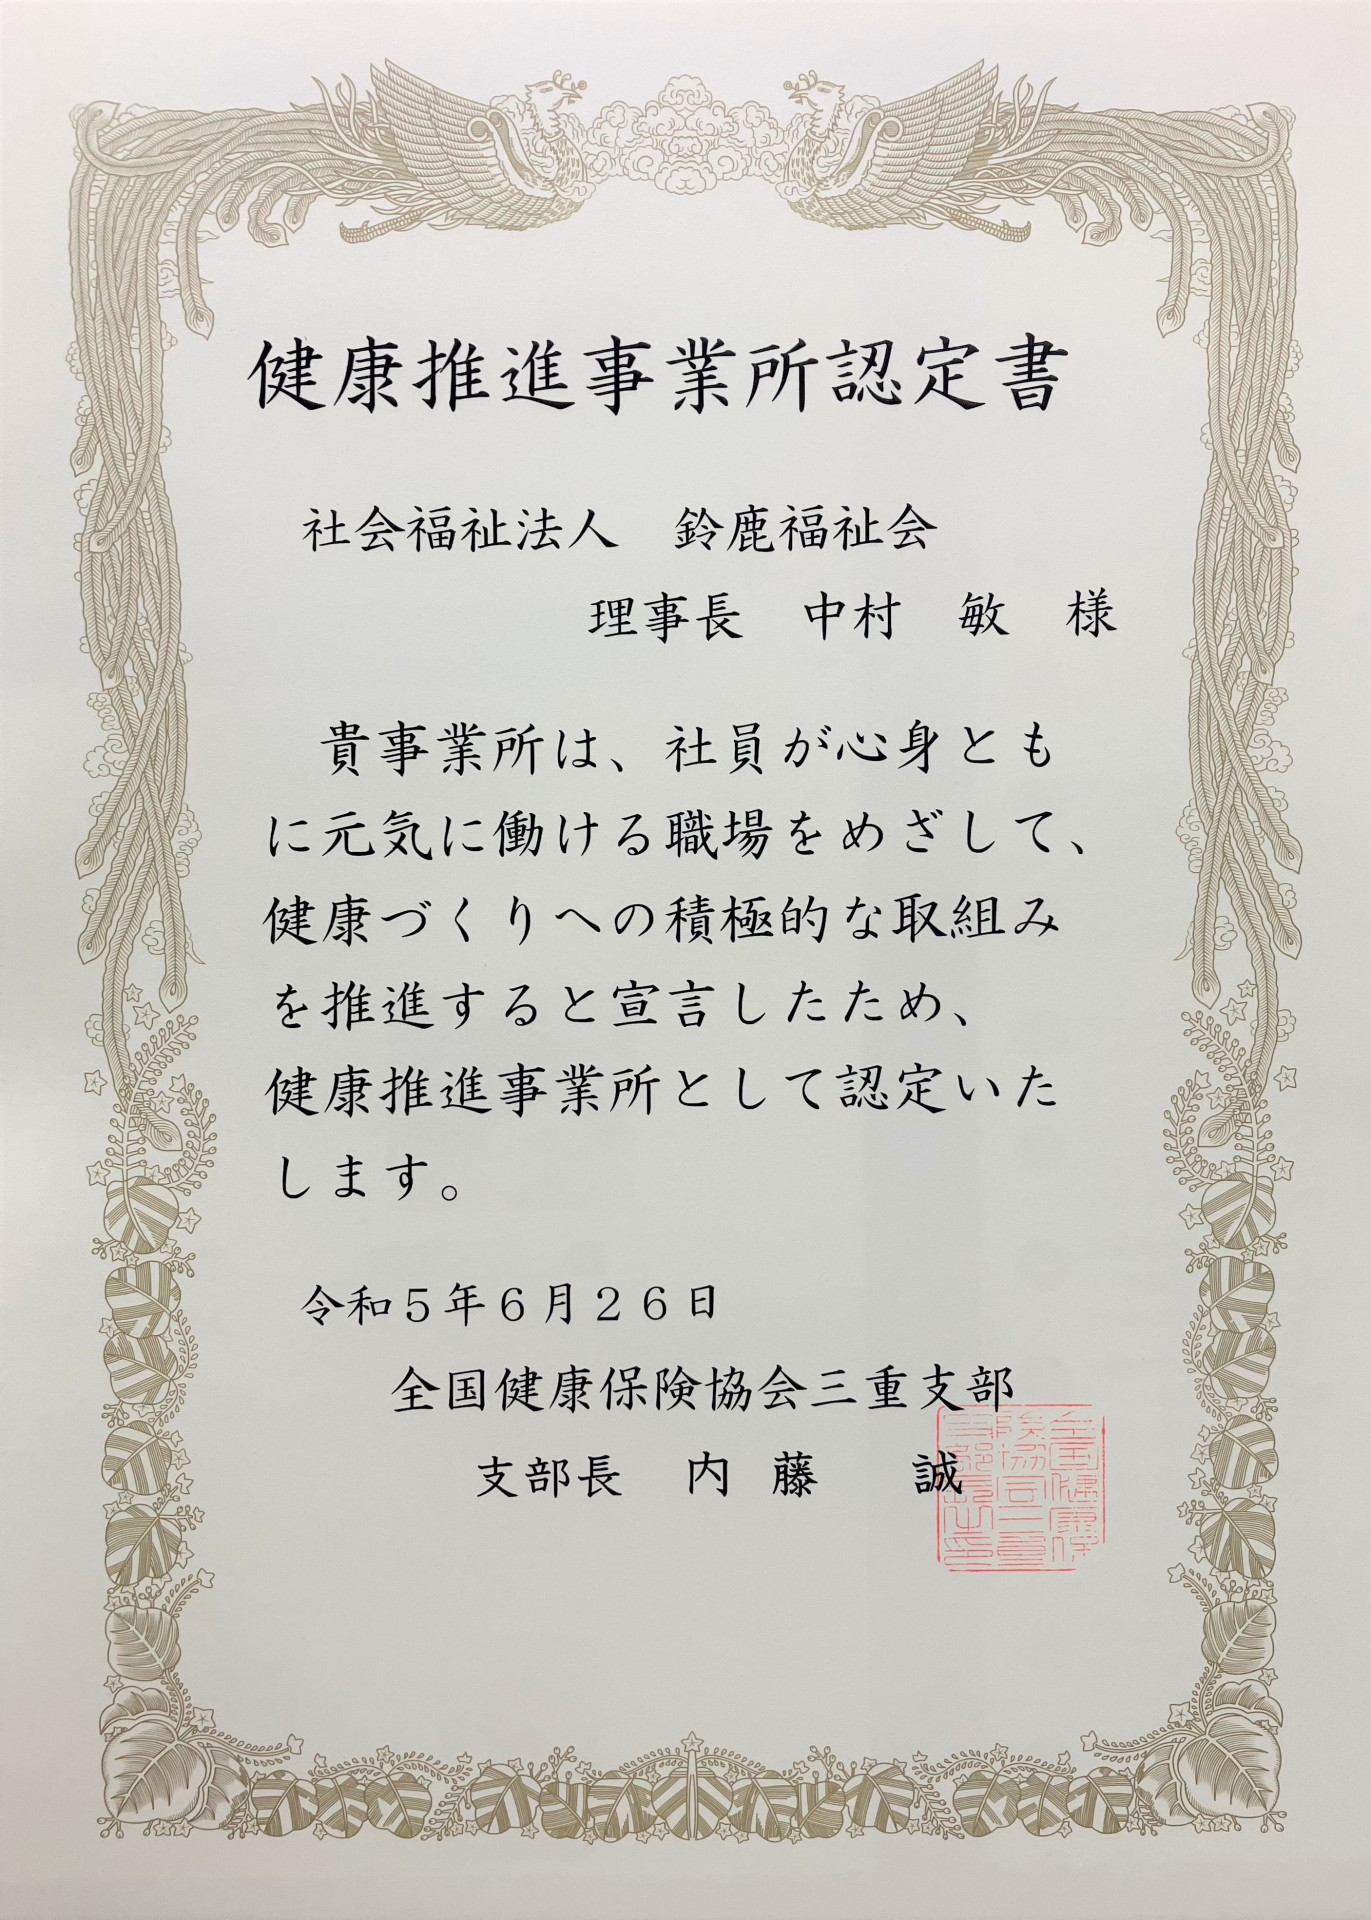 健康推進事業所認定書
社会福祉法人　鈴鹿福祉会
理事長　中村　敏　様
貴事業所は、社員が心身とも
に元気に働ける職場をめざして、
健康づくりへの積極的な取組み
を推進すると宣言したため、
健康推進事業所として認定いた
します。
令和５年６月２６日
全国健康保険協会三重支部
支部長　内藤　誠
全国健康保
険協会三重
支部長之印